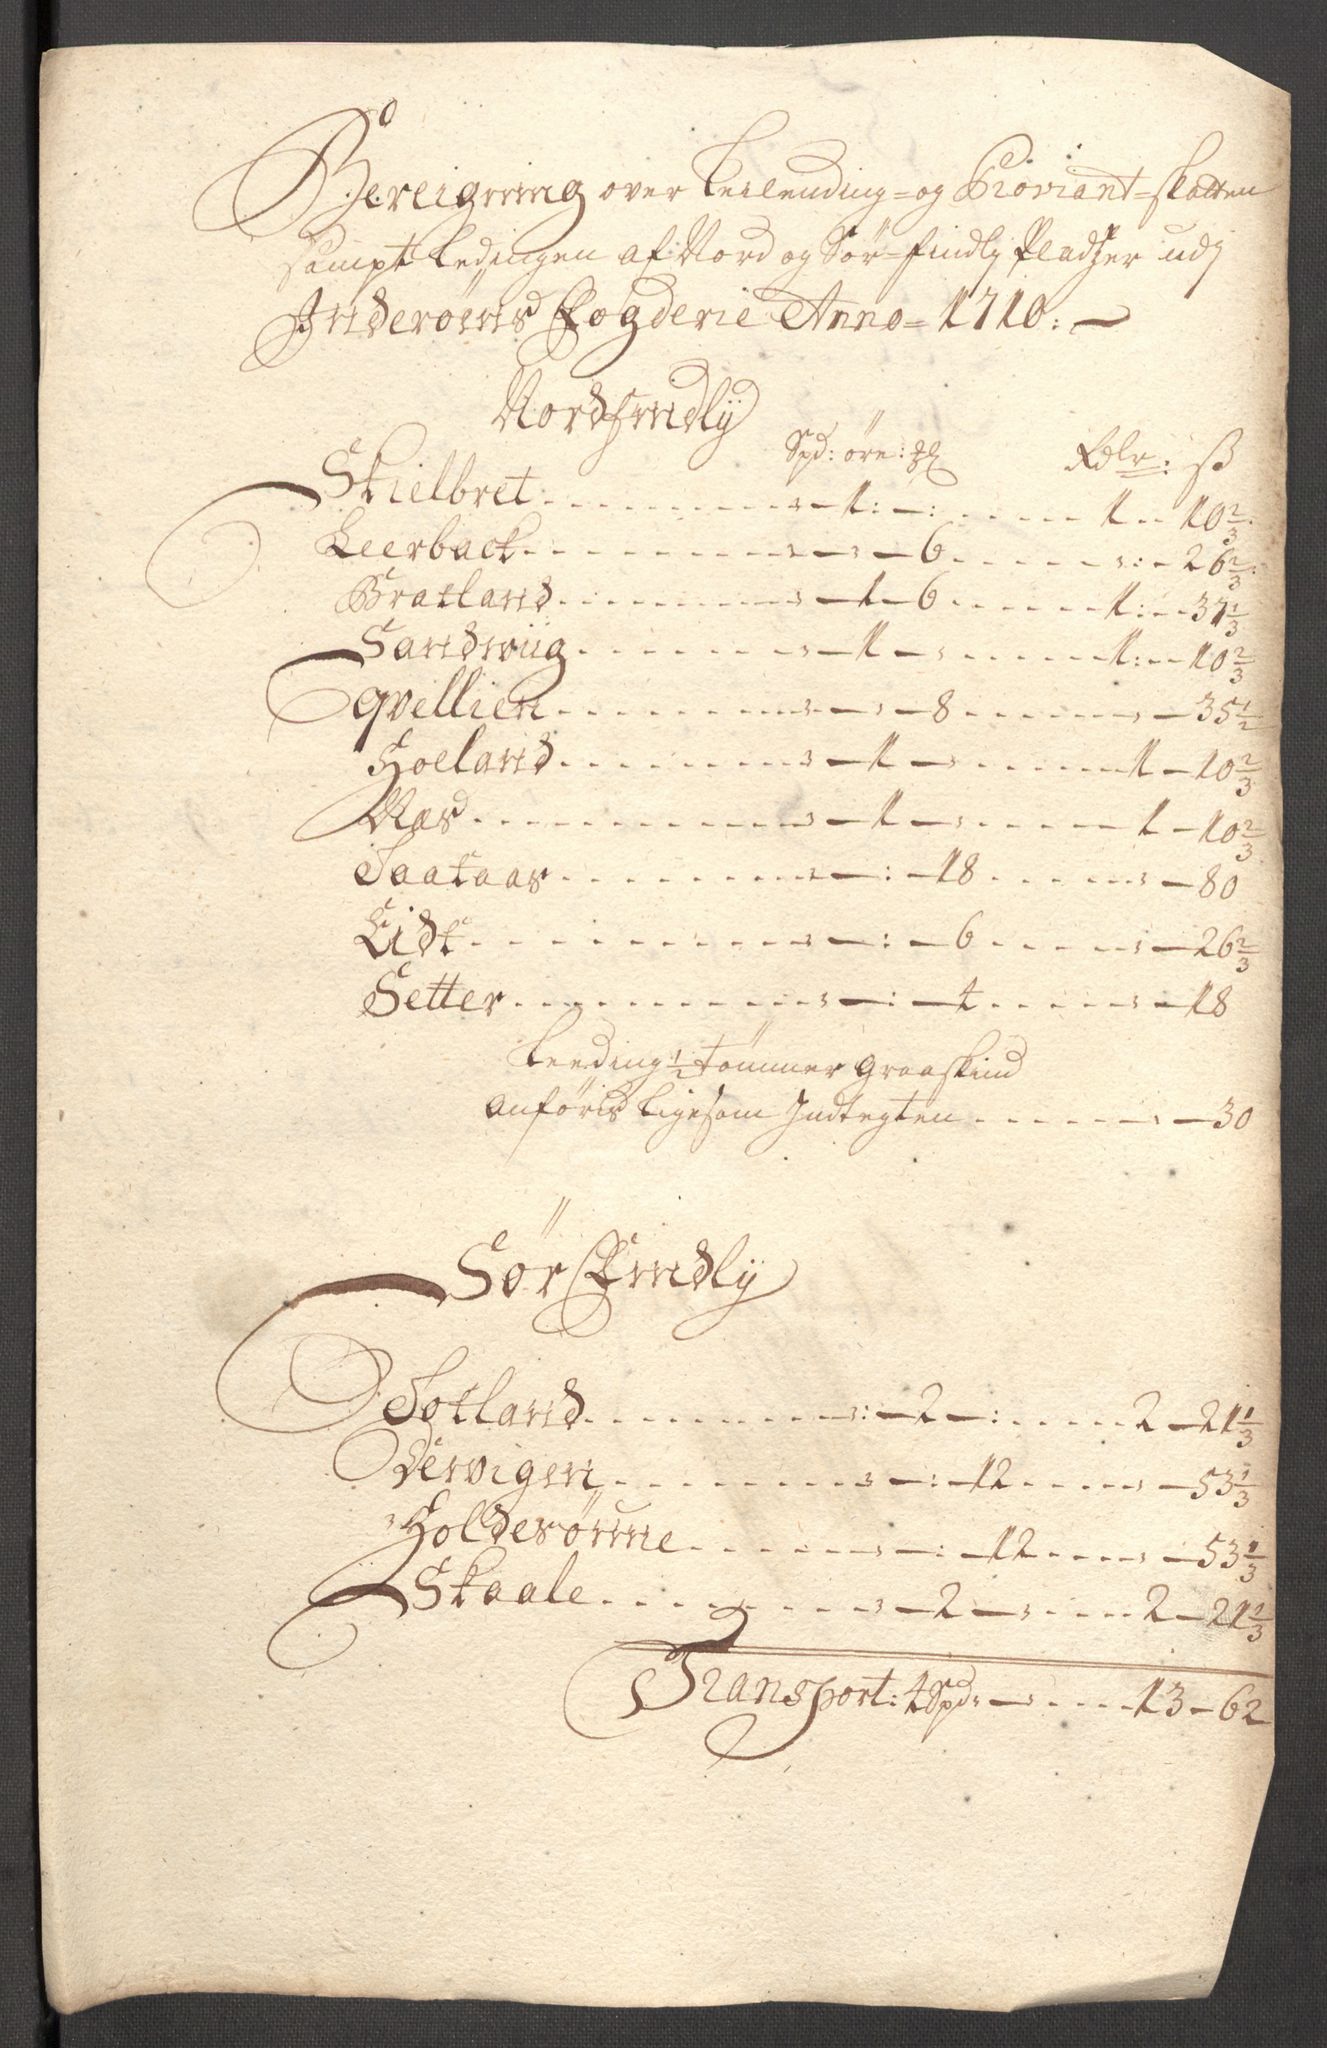 Bereigning over Leilending= og Proviant=skatten
sampt Ledingen af Nord og Sör=findlj Pladzer udj
Inderöens Fogderie Anno=1710:
Nordfindlij
Spd: öre: Rdlr: ß
Skielbret 1: 1 10 2/3
Leerback 6 26 2/3
Bratland 1 6 1: 37 1/3
Sandwiig 1 1: 10 2/3
Qvellien 8 35 1/2
Hoeland 1 1 10 2/3
Näs 1 1 10 2/3
Saataas 18 80
Lidt 6 26 2/3
Setter 4 18
Leeding 1/2 tömmer graaskind
anföris ligesom Indtegten 30
Sör Findlij
Totland 2 2 21 1/3
Dervigen 12 53 1/3
Holdesöune 12 53 1/3
Skaale 2 2 21 2/3
Transport: 4 Spd: 13 62